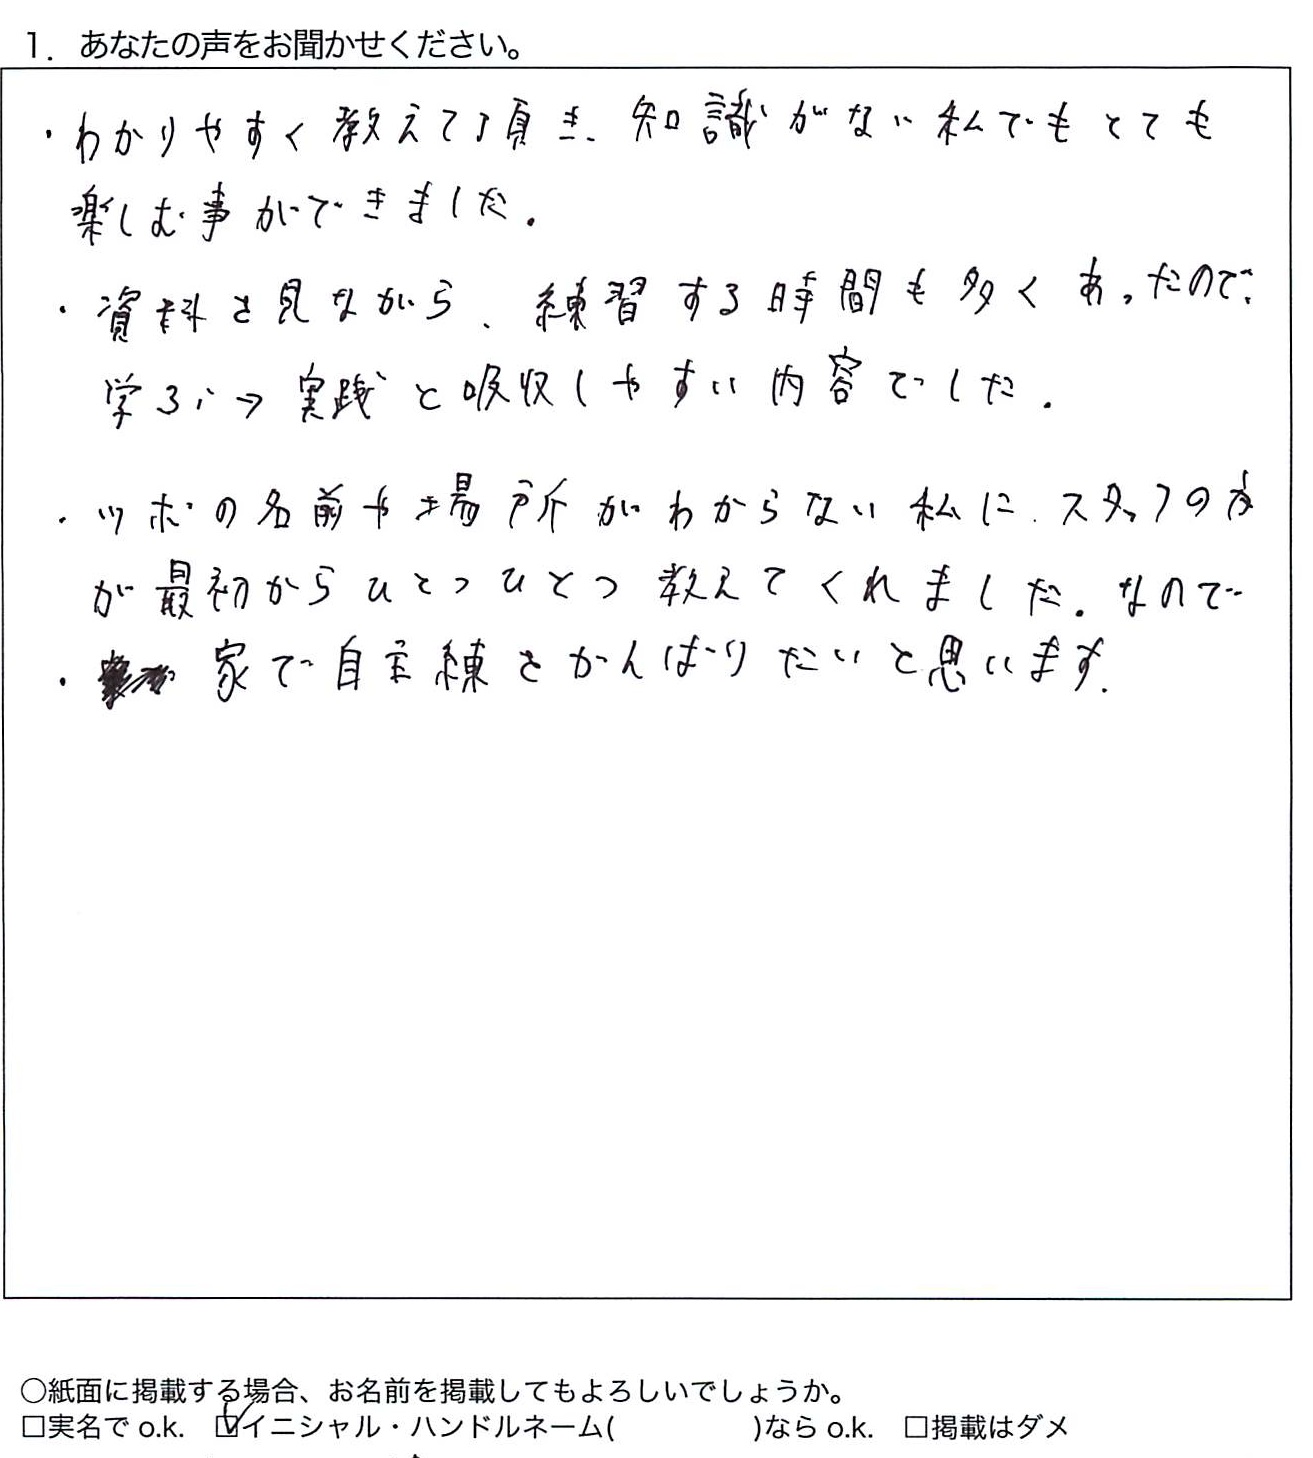 1. あなたの声をお聞かせください。
・わかりやすく教えて頂き、知識がない私でもとても
楽しむ事ができました。
・資料を見ながら、練習する時間も多くあったので、
学ぶ→実践と吸収しやすい内容でした。
・ツボの名前や場所がわからない私に、スタッフの方
が最初からひとつひとつ教えてくれました。なので
・家で自主練をがんばりたいと思います。
○紙面に掲載する場合、お名前を掲載してもよろしいでしょうか。
□実名で o.k. ☑イニシャル・ハンドルネーム( )なら o.k. □掲載はダメ